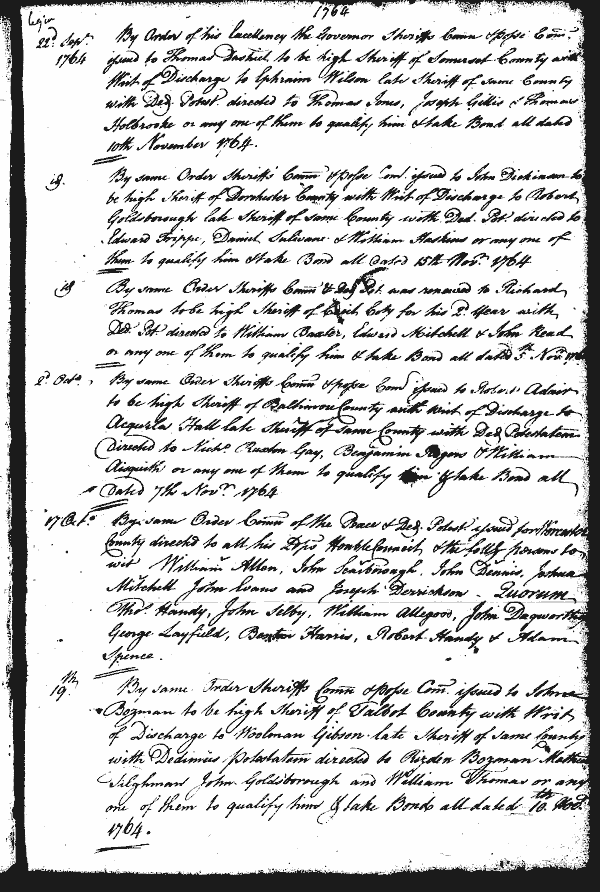 1764
22d Sepr. By Order of his Excellency the Governor Sheriffs Comn & posse Comn.
1764 issued to Thomas Dashiel to be high Sheriff of Somerset County with
Writ of Discharge to Ephraim Wilson late Sheriff of same County
with Ded. Potest. directed to Thomas Jones, Joseph Gillis & Thomas
Holbrooke or any one of them to qualify him & take Bond all dated
10th November 1764.
id. By same Order Sheriffs Comn & posse Com. issued to John Dickinson to
be high Sheriff of Dorchester County with Writ of Discharge to Robert
Goldsborough late Sheriff of same County with Ded. Pot. directed to
Edward Trippe, Daniel Sulivane & William Haskins or any one of
them to qualify him & take Bond all dated 15th Novr. 1764
id By same Order Sheriffs Comn & Ded Pot. was renewed to Richard
Thomas to be high Sheriff of Cecil Coty for his 2d Year with
Ded. Pot. directed to William Baxter, Edward Mitchell & John Read
or any one of them to qualify him & take Bond all dated 5th Novr. 1764
2d Octo. By same Order Sheriffs Comn & posse Com. issued to Robert Adair
to be high Sheriff of Baltimore County with Writ of Discharge to
Acquila Hall late Sheriff of Same County with Ded. Potestatem
directed to Nichs. Ruxton Gay, Benjamin Rogers & William
Aisquith or any one of them to qualify him & take Bond all
dated 7th Novr. 1764
17 Octo. By same Order Comn of the Peace & Ded. Potest issued for Worcester
County directed to all his Ldps Honble Council & the follg persons to
wit William Allen, John Scarborough, John Dennis, Joshua
Mitchell John Evans and Joseph Derrickson - Quorum
Thos. Handy, John Selby, William Allegood, John Dagworthy
George Layfield, Benton Harris, Robert Handy & Adam
Spence.
19th By same Order Sheriffs Comn & posse Com. issued to John
Bozman to be high Sheriff of Talbot County with Writ
of Discharge to Woolman Gibson late Sheriff of Same County
with Dedimus Potestatem directed to Risdon Bozman Mathew
Tilghman John Goldsborough and William Thomas or any
one of them to qualify him & take Bond all dated 10th Novr.
1764.